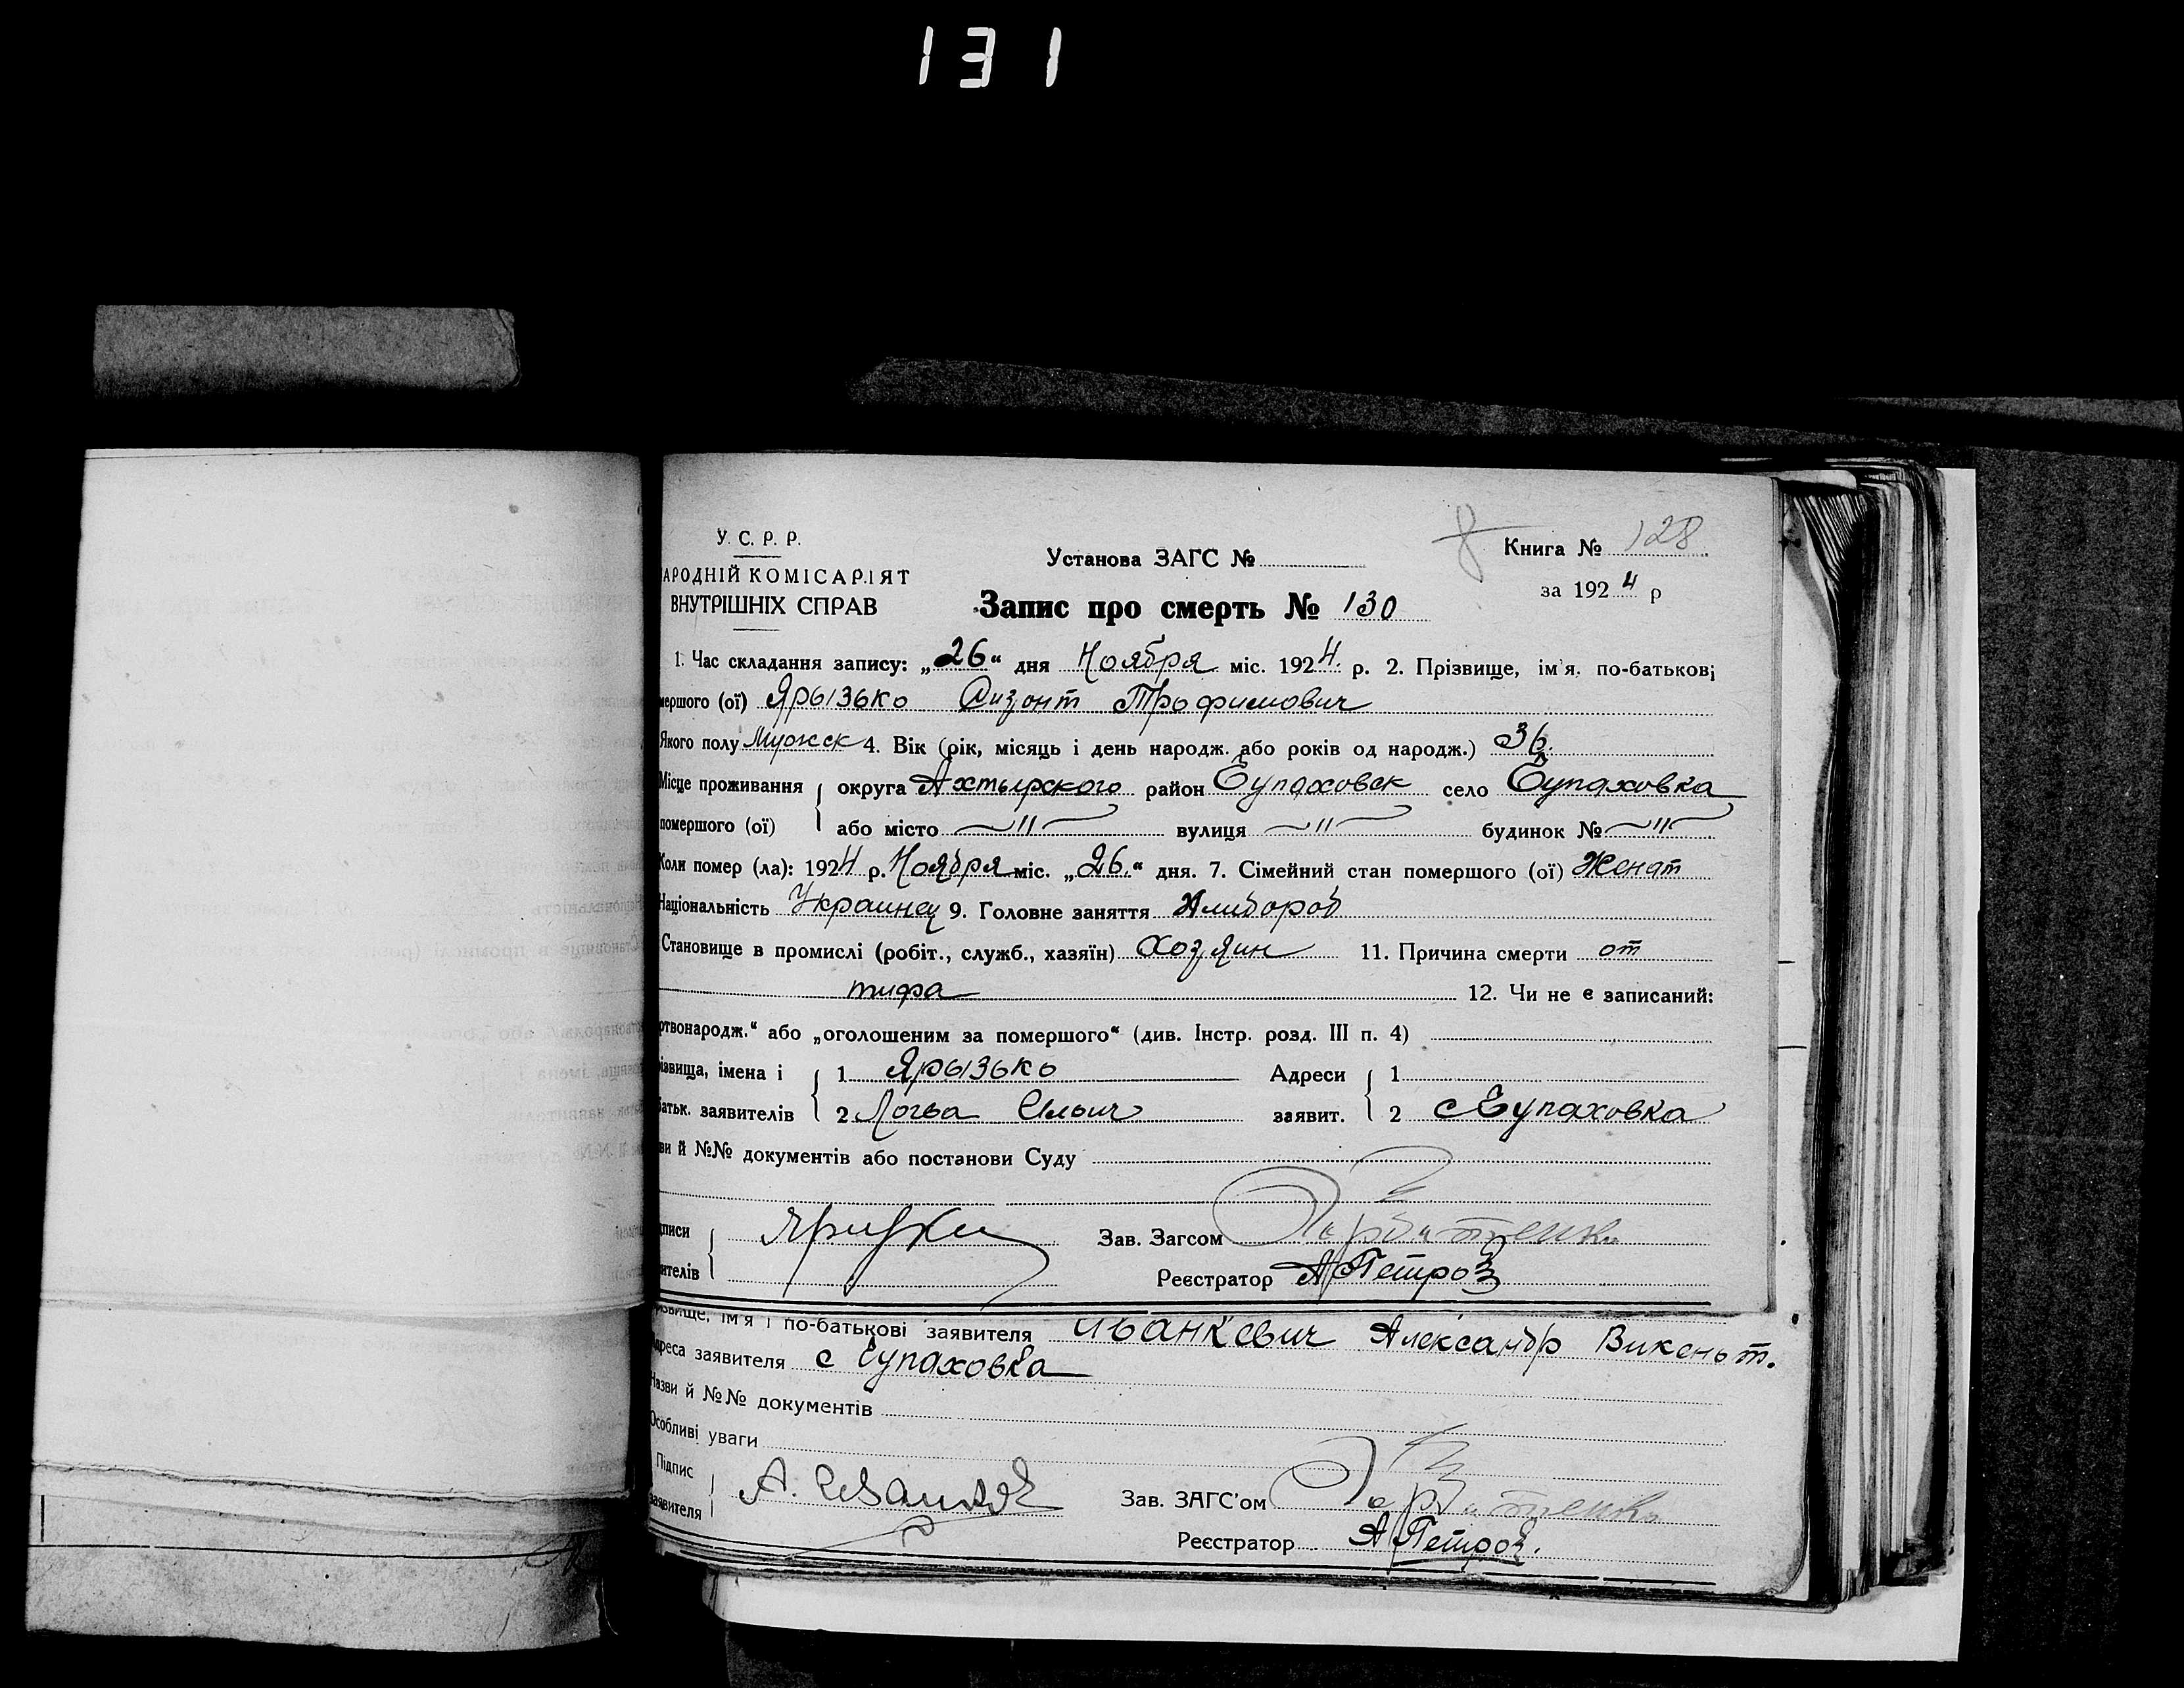 131
У. С. Р. Р.
АРОДНІЙ КОМІСАРІЯТ
ВНУТРІШНІХ СПРАВ
Установа ЗАГС №
Книга № 128
за 1924 р
Запис про смерть № 130
1. Час складання запису: „26“ дня Ноября міс. 1924. р. 2. Прізвище, ім'я, по-батькові
мершого (ої) Ярызько Сизонт Трофимович
Якого полу Мужск 4. Вік (рік, місяць і день народж. або років од народж.) 36.
Місце проживання округа Ахтырского район Еупаховск село Еупаховка
помершого (ої) або місто —〃— вулиця —〃— будинок № —〃—
Коли помер (ла): 1924 р. Ноября міс. „26.“ дня. 7. Сімейний стан помершого (ої) Женат
Національність Украинец 9. Головне заняття Хлибороб
Становище в промислі (робіт., служб., хазяїн) Хозяин 11. Причина смерти от
тифа 12. Чи не є записаний:
ртвонародж.“ або „оголошеним за помершого“ (див. Інстр. розд. III п. 4)
ізвища, імена і 1 Ярызько Адреси 1
батьк. заявителів 2 Ильич заявит. 2 с Еупаховка
ви й №№ документів або постанови Суду
дписи Зав. Загсом
ителів Реєстратор А Петров
різвище, ім'я і по-батькові заявителя Иванкевич Александр Викеньт.
дреса заявителя с Еупаховка
Назви й №№ документів
Особливі уваги
Підпис А. Зав. ЗАГС'ом
заявителя Реєстратор А Петров.